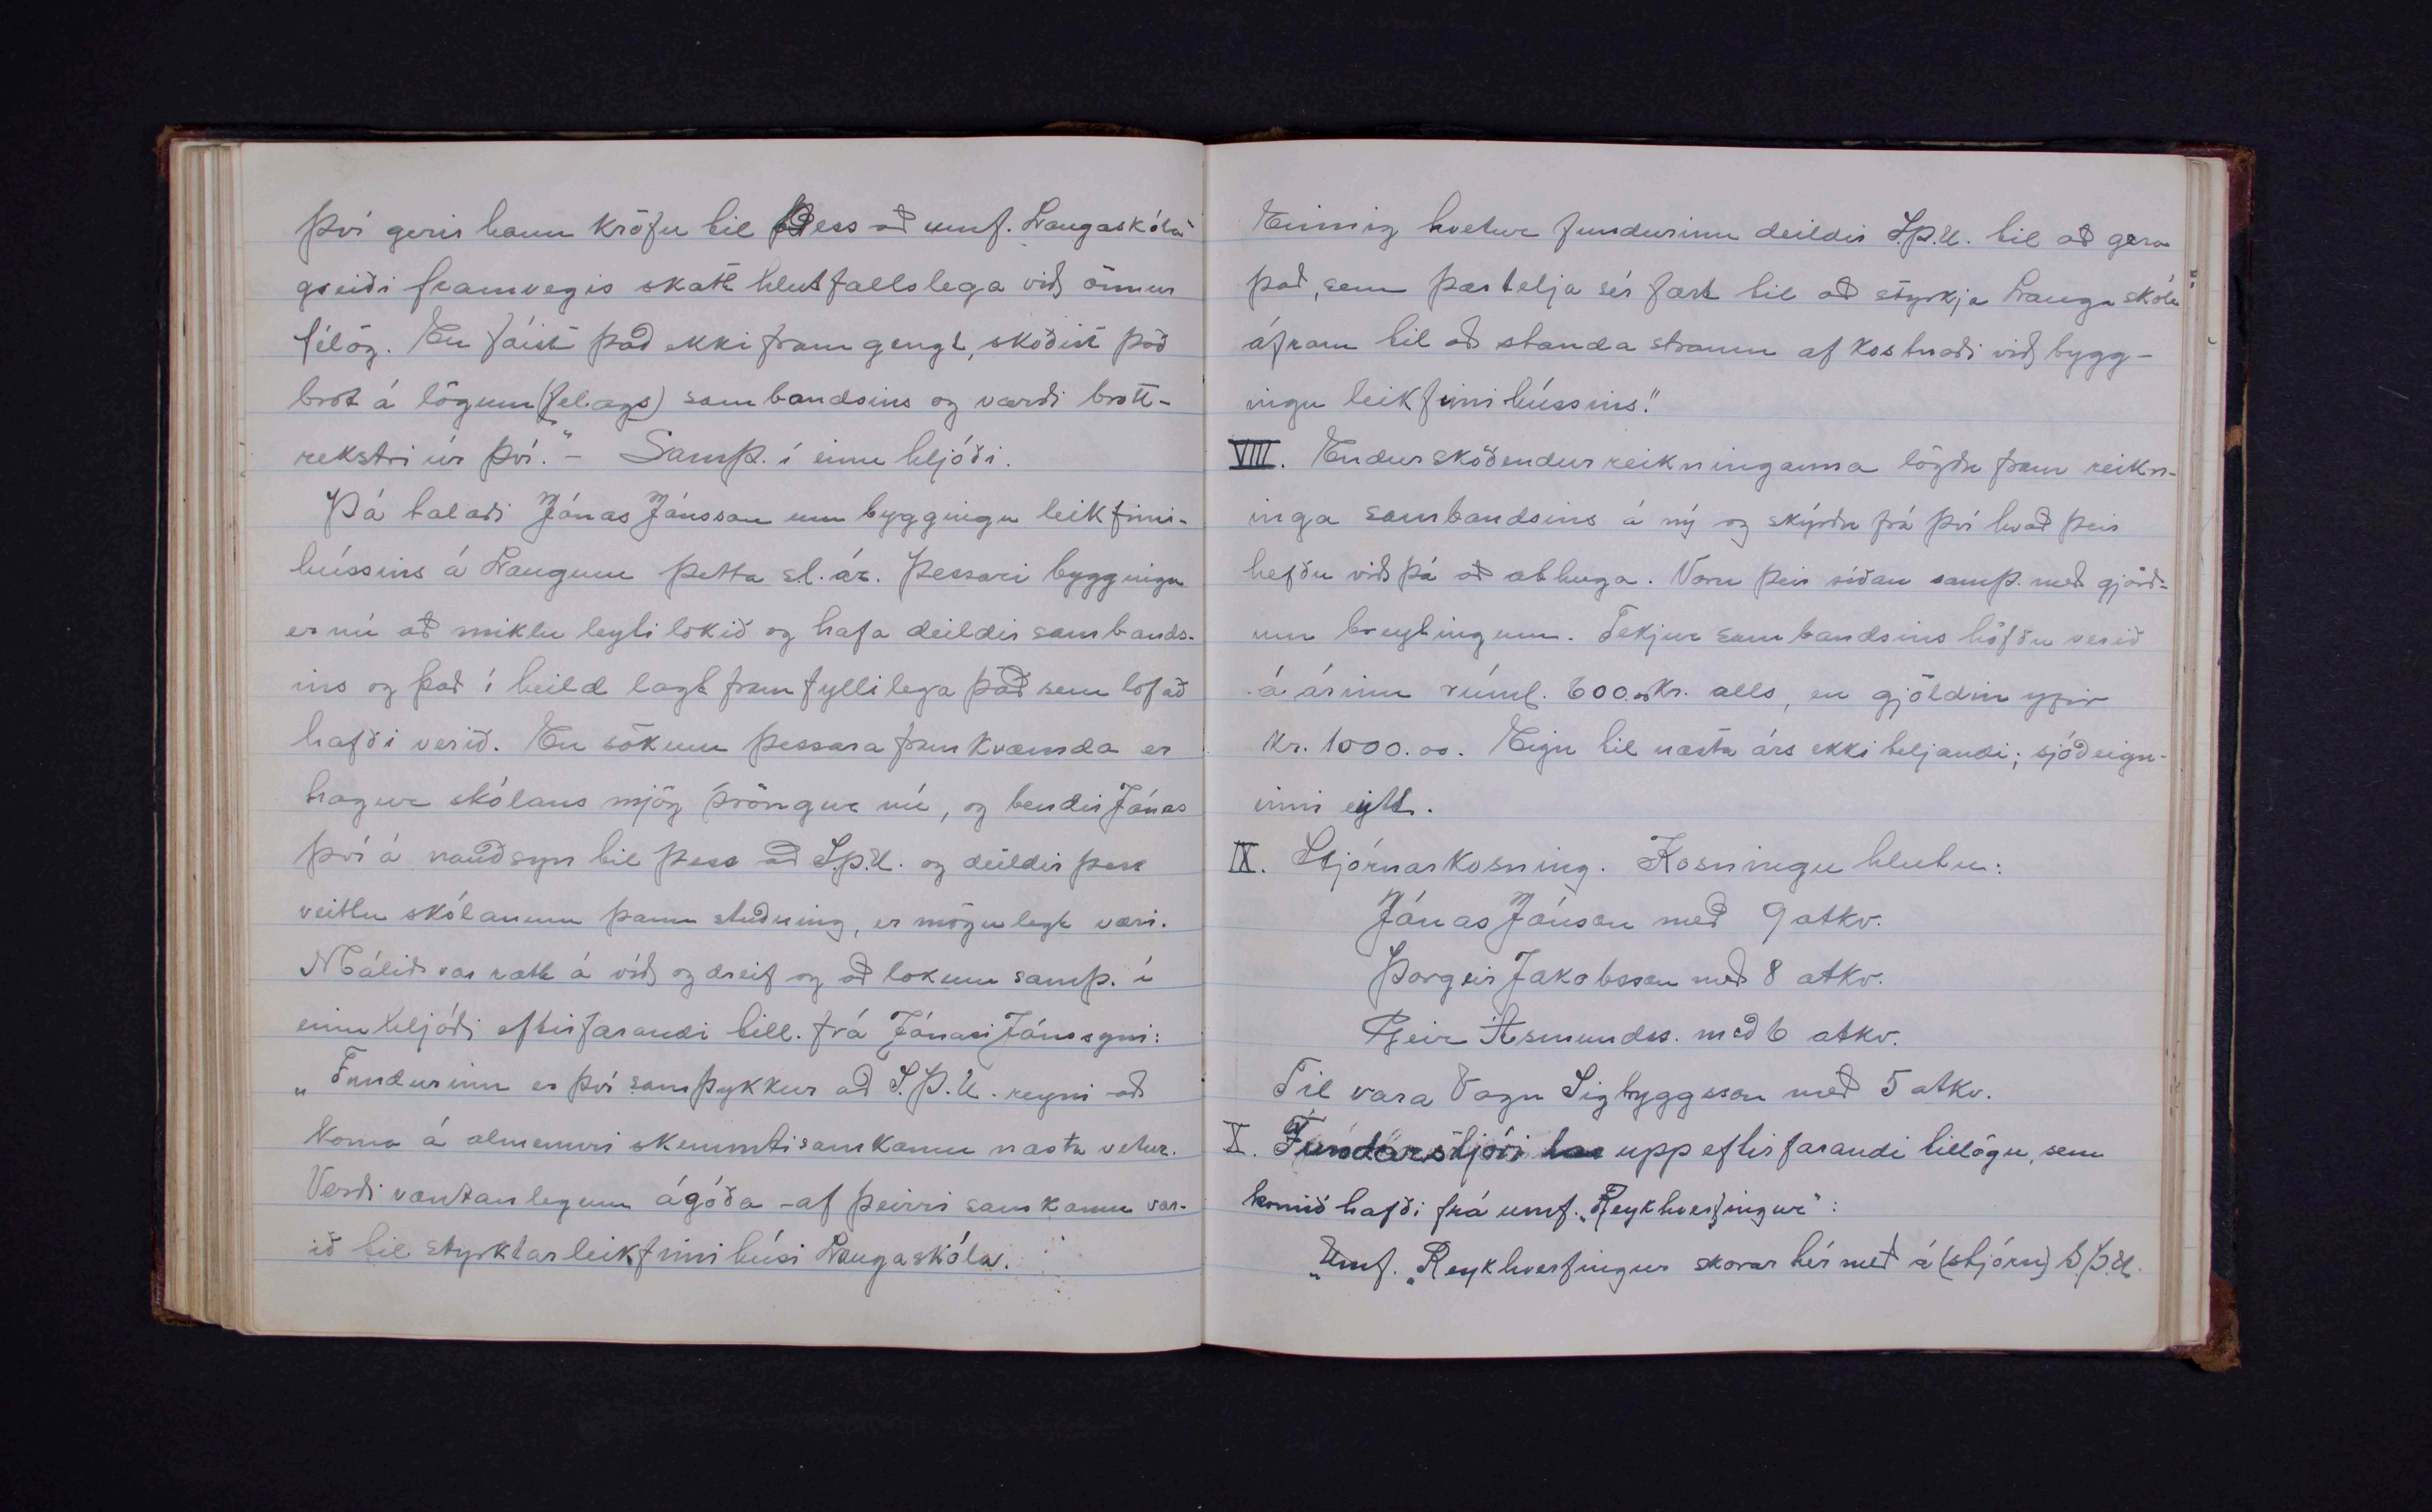 því gerir hann kröfu til þess að umf. Laugaskóla
greiði framvegis skatt hlutfallslega við önnur
félög. En fáist það ekki fram gengt, skoðist það
brot á lögum (félags) sambandsins og varði brott-
rekstri úr því." - Samþ. í einu hljóði.
Þá talaði Jónas Jónsson um byggingu leikfimi-
hússins á Laugum þetta s.l. ár. Þessari byggingu
er nú að miklu leyti lokið og hafa deildir sambands-
ins og það í heild lagt fram fyllilega það sem lofað
hafði verið. En sökum þessara framkvæmda er
hagur skólans mjög þröngur nú, og bendir Jónas
því á nauðsyn til þess að S.þ.U. og deildir þess
veittu skólanum þann stuðning, er mögulegt væri.
Málið var rætt á víð og dreif og að lokum samþ. í
einu hljóði eftirfarandi till. frá Jónasi Jónssyni:
„Fundurinn er því samþykkur að S.Þ.U. reyni að
koma á almennri skemmtisamkomu næsta vetur.
Verði væntanlegum ágóða af þeirri samkomu var-
ið til styrktar leikfimihúsi Laugaskóla.
Einnig hvetur fundurinn deildir S.Þ.U. til að gera
það, sem þær telja sér fært til að styrkja Laugaskóla
áfram til að standa straum af kostnaði við bygg-
ingu leikfimihússins."
VIII. Endurskoðendur reikninganna lögðu fram reikn-
inga sambandsins á ný og skýrðu frá því hvað þeir
hefðu við þá að athuga. Voru þeir síðan samþ. með gjörð-
um breytingum. Tekjur sambandsins höfðu verið
á árinu rúml. 600.00 kr. alls, en gjöldin yfir
kr. 1000.00. Eign til næsta árs ekki teljandi; sjóðeign-
inni eytt.
IX. Stjórnarkosning. Kosningu hlutu:
Jónas Jónson með 9 atkv.
Þorgeir Jakobsson með 8 atkv.
Geir Ásmundss. með 6 atkv.
Til vara Vagn Sigtryggsson með 5 atkv.
X. Fundarstjóri las upp eftirfarandi tillögu, sem
komið hafði frá umf. „Reykhverfingur":
„Umf. „Reykhverfingur skorar hér með á (stjórn) S.Þ.U.